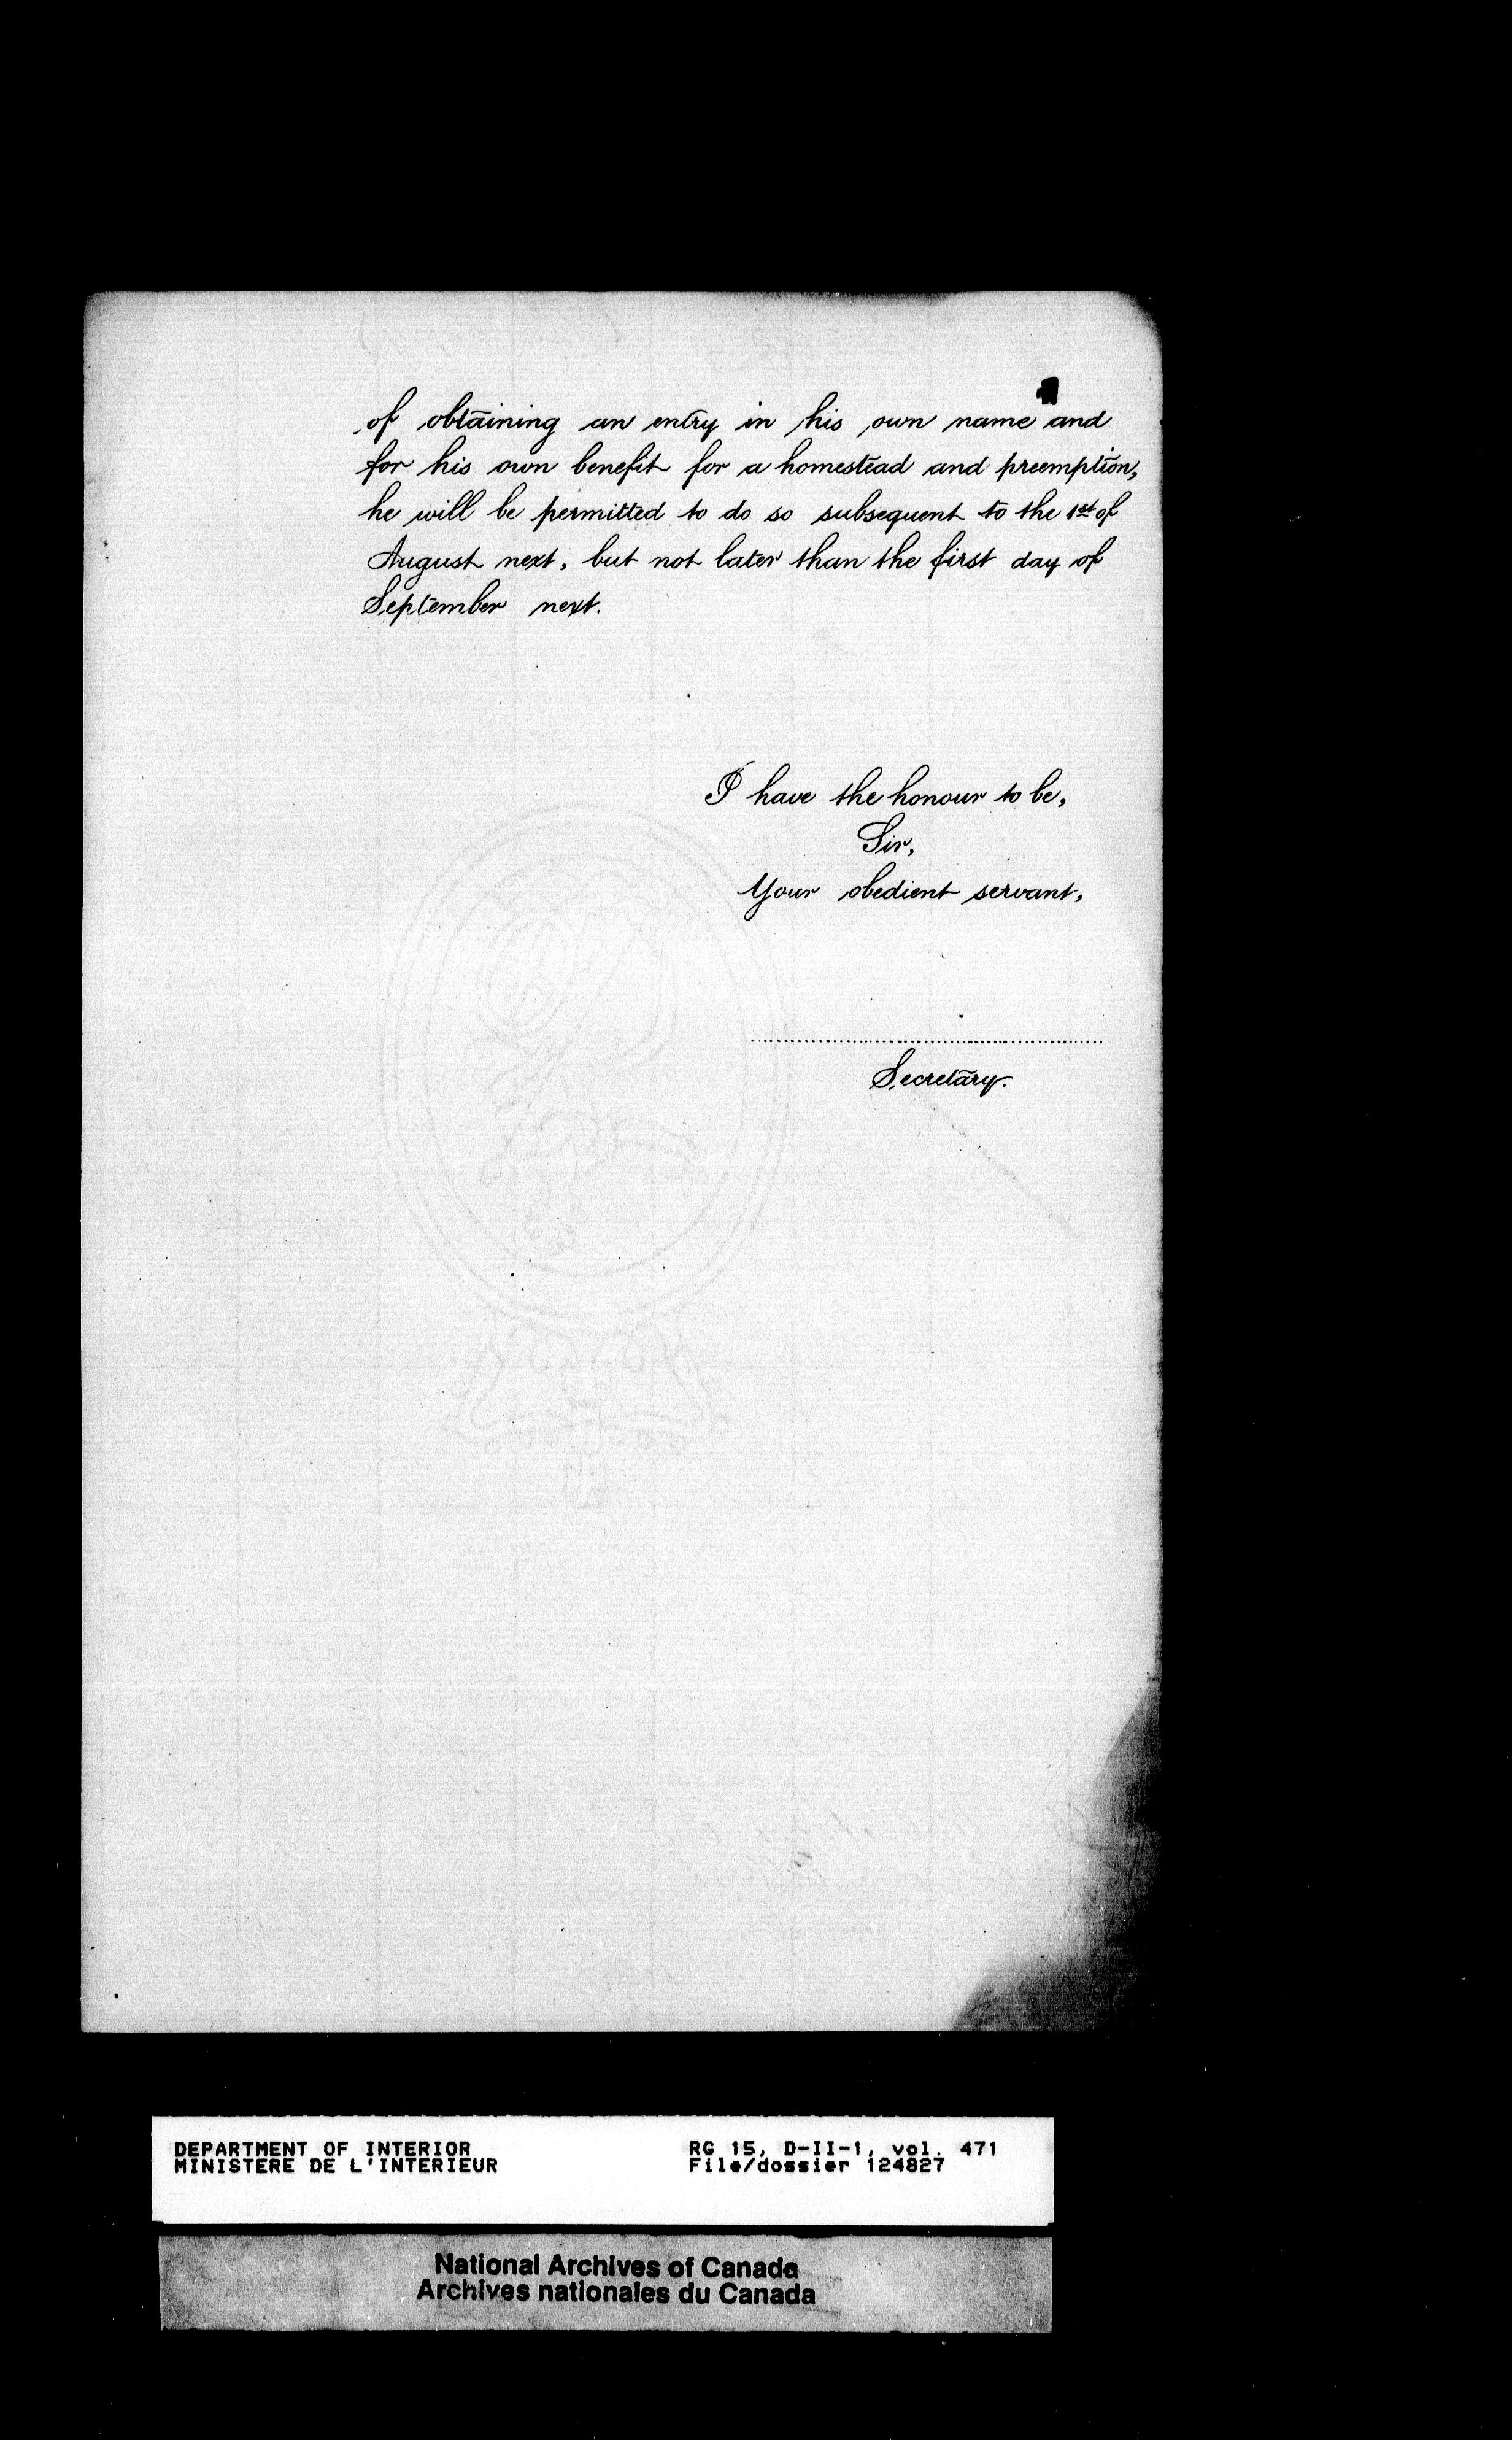 of obtaining an entry in his own name and
for his own benefit for a homestead and preemption,
he will be permitted to do so subsequent to the 1st of
August next, but not later than the first day of
September next.
I have the honour to be,
Sir,
Your obedient servant,
Secretary.
DEPARTMENT OF INTERIOR
MINISTERE DE L'INTERIEUR
RG 15, D-II-1, vol. 471
File/dossier 124827
National Archives of Canada
Archives nationales du Canada